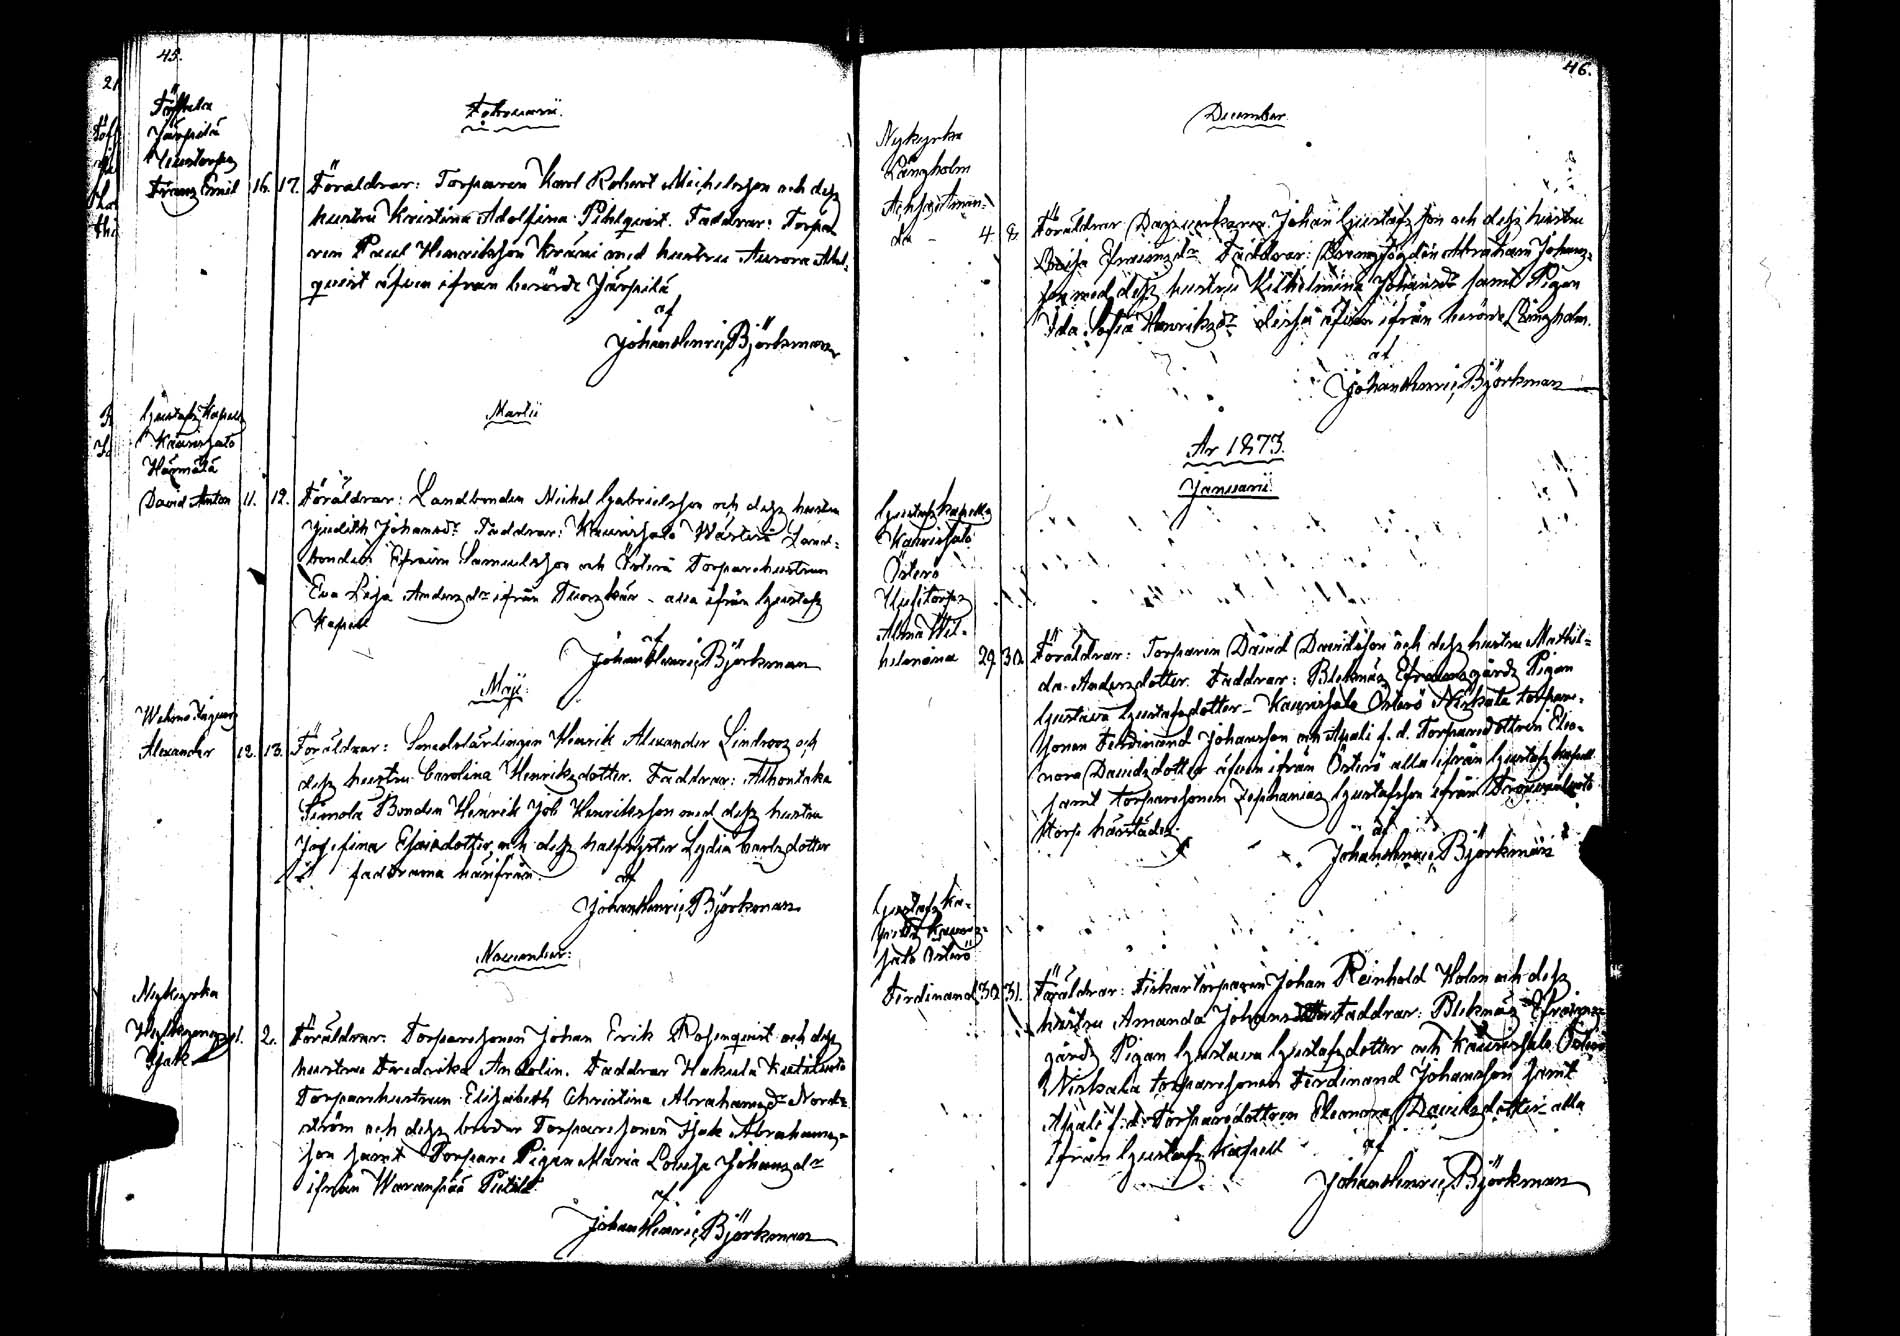 45.
Februarii.
Töfsala
Järpilä
Frans Emil 16. 17. Föräldrar: Torparen Karl Robert Michelsson och dess
hustru Kristina Adolfina Pihlqvist. Faddrar: Torpa
ren Paul Henriksson Kräni med hustru Aurora Ahl-
qvist äfven ifrån berörde Järpilä
af
Johan Henric Björkman
Martii
Gustafs Kapell
Kaurisalo
Härmälä
David Anton 11. 12. Föräldrar: Landbonden Michel Gabrielsson och dess hustru
Judith Johansdr Faddrar: Kaurisalo Wästerö Land-
bonden Efraim Samuelsson och Österö Torparehustrun
Eva Lisa Andersdr ifrån - alla ifrån Gustafs
Kapell
af
Johan Henric Björkman
Maji.
Wehmo
Alexander 12. 13. Föräldrar: Henrik Alexander Lindroos och
dess hustru Carolina Henriksdotter. Faddrar:
Simola Bonden Henrik Job Henriksson med dess hustru
Josefina Esaiedotter och dess halfsyster Lydia Carlsdotter
faddrarna härifrån.
af
Johan Henric Björkman
November.
Nykyrka
Isak 1. 2. Föräldrar: Torparesonen Johan Erik Rosenqvist och dess
hustru Fredrika Andolin. Faddrar Hakula
Torparehustrun Elisabeth Christina Abrahamsdr Nord-
ström och dess broder Torparesonen Isak Abrahams-
son samt Torpare Pigan Maria Lovisa Johansdr
ifrån Waranpää
af
Johan Henric Björkman
46.
December.
Nykyrka
Långholm
Aman-
da - 4. 8. Föräldrar Dagsverkaren Johan Gustafsson och dess hustru
Lovisa Efraimsdr Faddrar: Abraham Johans-
son med dess hustru Vilhelmina Johansdr samt Pigan
Ida Sofia Henriksdr dessa äfven ifrån berörde Långholm.
af
Johan Henric Björkman
År 1873.
Januarii.
Gustafs kapell
Kaurisalo
Österö
Alma Wil-
helmina 29. 30. Föräldrar: Torparen David Davidsson och dess hustru Mathil-
da Andersdotter. Faddrar: Bleknäs Efraimsgårds Pigan
Gustava Gustafsdotter - Kaurisalo Österö Niskala torpare-
sonen Ferdinand Johansson och Apali f. d. Torparedottren Eleo-
nora Davidsdotter äfven ifrån Österö alla ifrån Gustafs kapell
samt torparesonen Zephanias Gustafsson ifrån
torp härstädes.
af
Johan Henric Björkman
Gustafs Ka-
pell Kauri-
salo Österö
Ferdinand 30. 31. Föräldrar: Fiskartorparen Johan Reinhold Holm och dess
hustru Amanda Johansdotter Faddrar: Bleknäs Efraims-
gårds Pigan Gustava Gustafsdotter och Kaurisalo Österö
Niskala torparesonen Ferdinand Johansson samt
Apali f. d. Torparedottren Eleonora Davidsdotter alla
ifrån Gustafs Kapell
af
Johan Henric Björkman